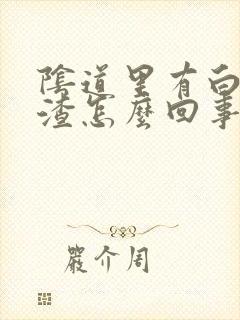 陰道里有白
渣怎麼回事
嚴介周